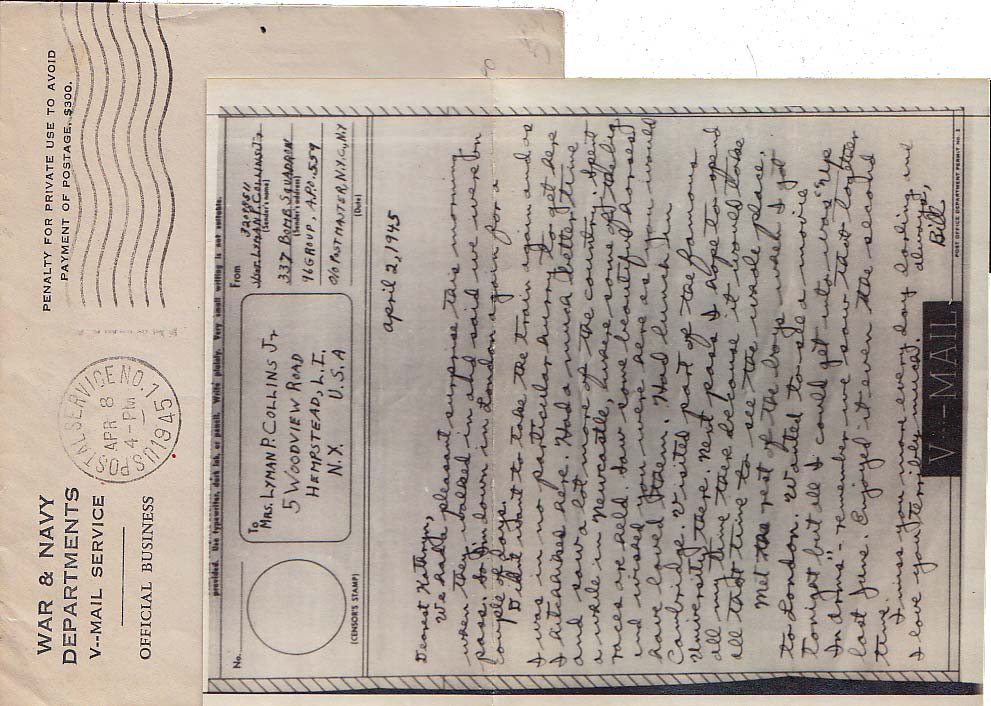 PENALTY FOR PRIVATE USE TO AVOID
PAYMENT OF POSTAGE, $300.
U.S. POSTAL SERVICE NO. 1
APR 8
4-PM
1945
WAR & NAVY
DEPARTMENTS
V-MAIL SERVICE
OFFICIAL BUSINESS
provided. Use typewriter, dark ink, or pencil. Write plainly. Very small writing is not suitable.
No.
(CENSOR'S STAMP)
To
MRS. LYMAN P. COLLINS Jr
5 WOODVIEW ROAD
HEMPSTEAD, L.I.,
N.Y. U.S.A
From
LYMAN P. COLLINS Jr
(Sender's name)
337 BOMB SQUADRON
(Sender's address)
96 GROUP, APO. 559
c/o POSTMASTER, N.Y.C., N.Y
(Date)
April 2, 1945
Dearest Kathryn,
We had a pleasant surprise this morning
when they walked in and said we were on
pass. So I'm down in London again for a
couple of days.
Didn't want to take the train again and as
I was in no particular hurry to get here
I hitchhiked here. Had a much better time
and saw a lot more of the country. Spent
a while in Newcastle, where some of the big
races are held. Saw some beautiful horses
and wished you were here as you would
have loved them. Had lunch in
Cambridge. Visited part of the famous
University there. Next pass I hope to spend
all my time there because it would take
all that time to see the whole place.
Met the rest of the boys when I got
to London. Wanted to see a movie
tonight but all I could get into was "Up
In Arms" - remember we saw that together
last June. Enjoyed it even the second
time.
I miss you more every day darling and
I love you terribly much.
always,
Bill
V - MAIL
POST OFFICE DEPARTMENT PERMIT NO.